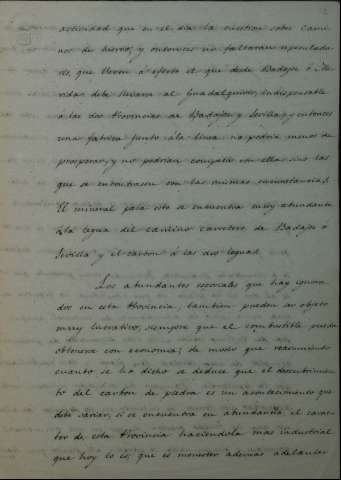 actividad que en el dia la cuestion sobre cami
nos de hierro, y entonces no faltaran especulado
res, que lleven á efecto el que desde Badajoz ó Me
rida debe llevarse al Guadalquivir, indispensable
a las dos Provincias de Badajoz y Sevilla, y entonces
una fabrica junto á la linea no podria menos de
prosperar, y no podrian competir con ella sino las
que se encontrasen con las mismas circunstancias.
El mineral para esto se encuentra muy abundante
á la legua del camino carretero de Badajoz á
Sevilla y el carbon á las dos leguas.
Los abundantes escoriales que hay ignora
dos en esta Provincia, tambien pueden ser objeto
muy lucrativo, siempre que el combustible pueda
obtenerse con economia; de modo que reasumiendo
cuanto se ha dicho se deduce que el descubrimien
to del carbon de piedra es un acontecimiento que
debe variar, si se encuentra en abundancia, el carac
ter de esta Provincia haciendola mas industrial
que hoy lo es; que es menester ademas adelantar